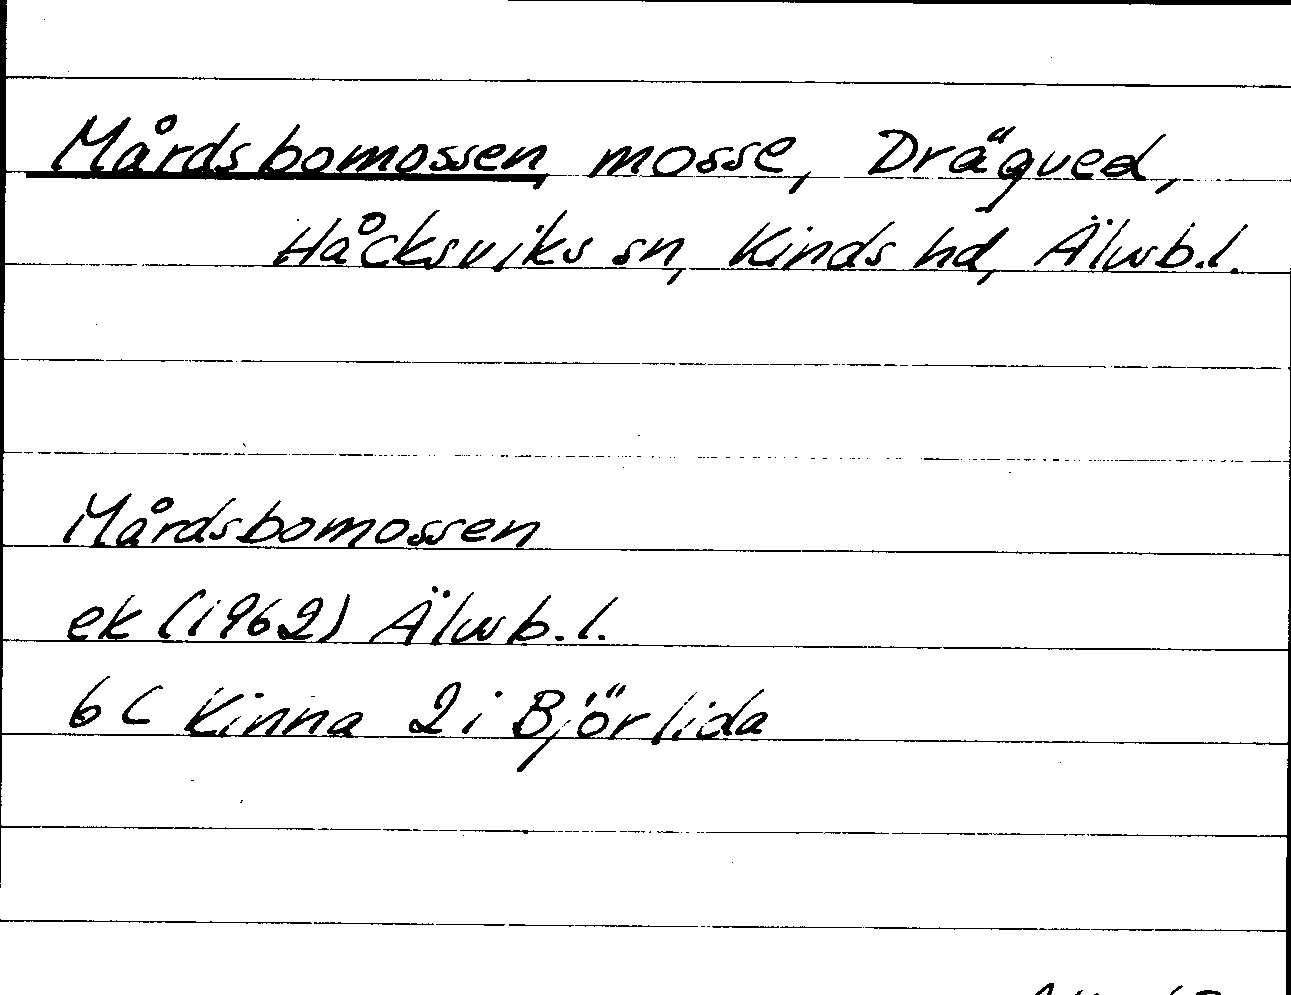 Mårdsbomossen, mosse, Drägved,
Håcksviks sn, Kinds hd, Älvsb.l.
Mårdsbomossen
ek (1962) Älvsb.l.
6 C Kinna 2 i Björlida